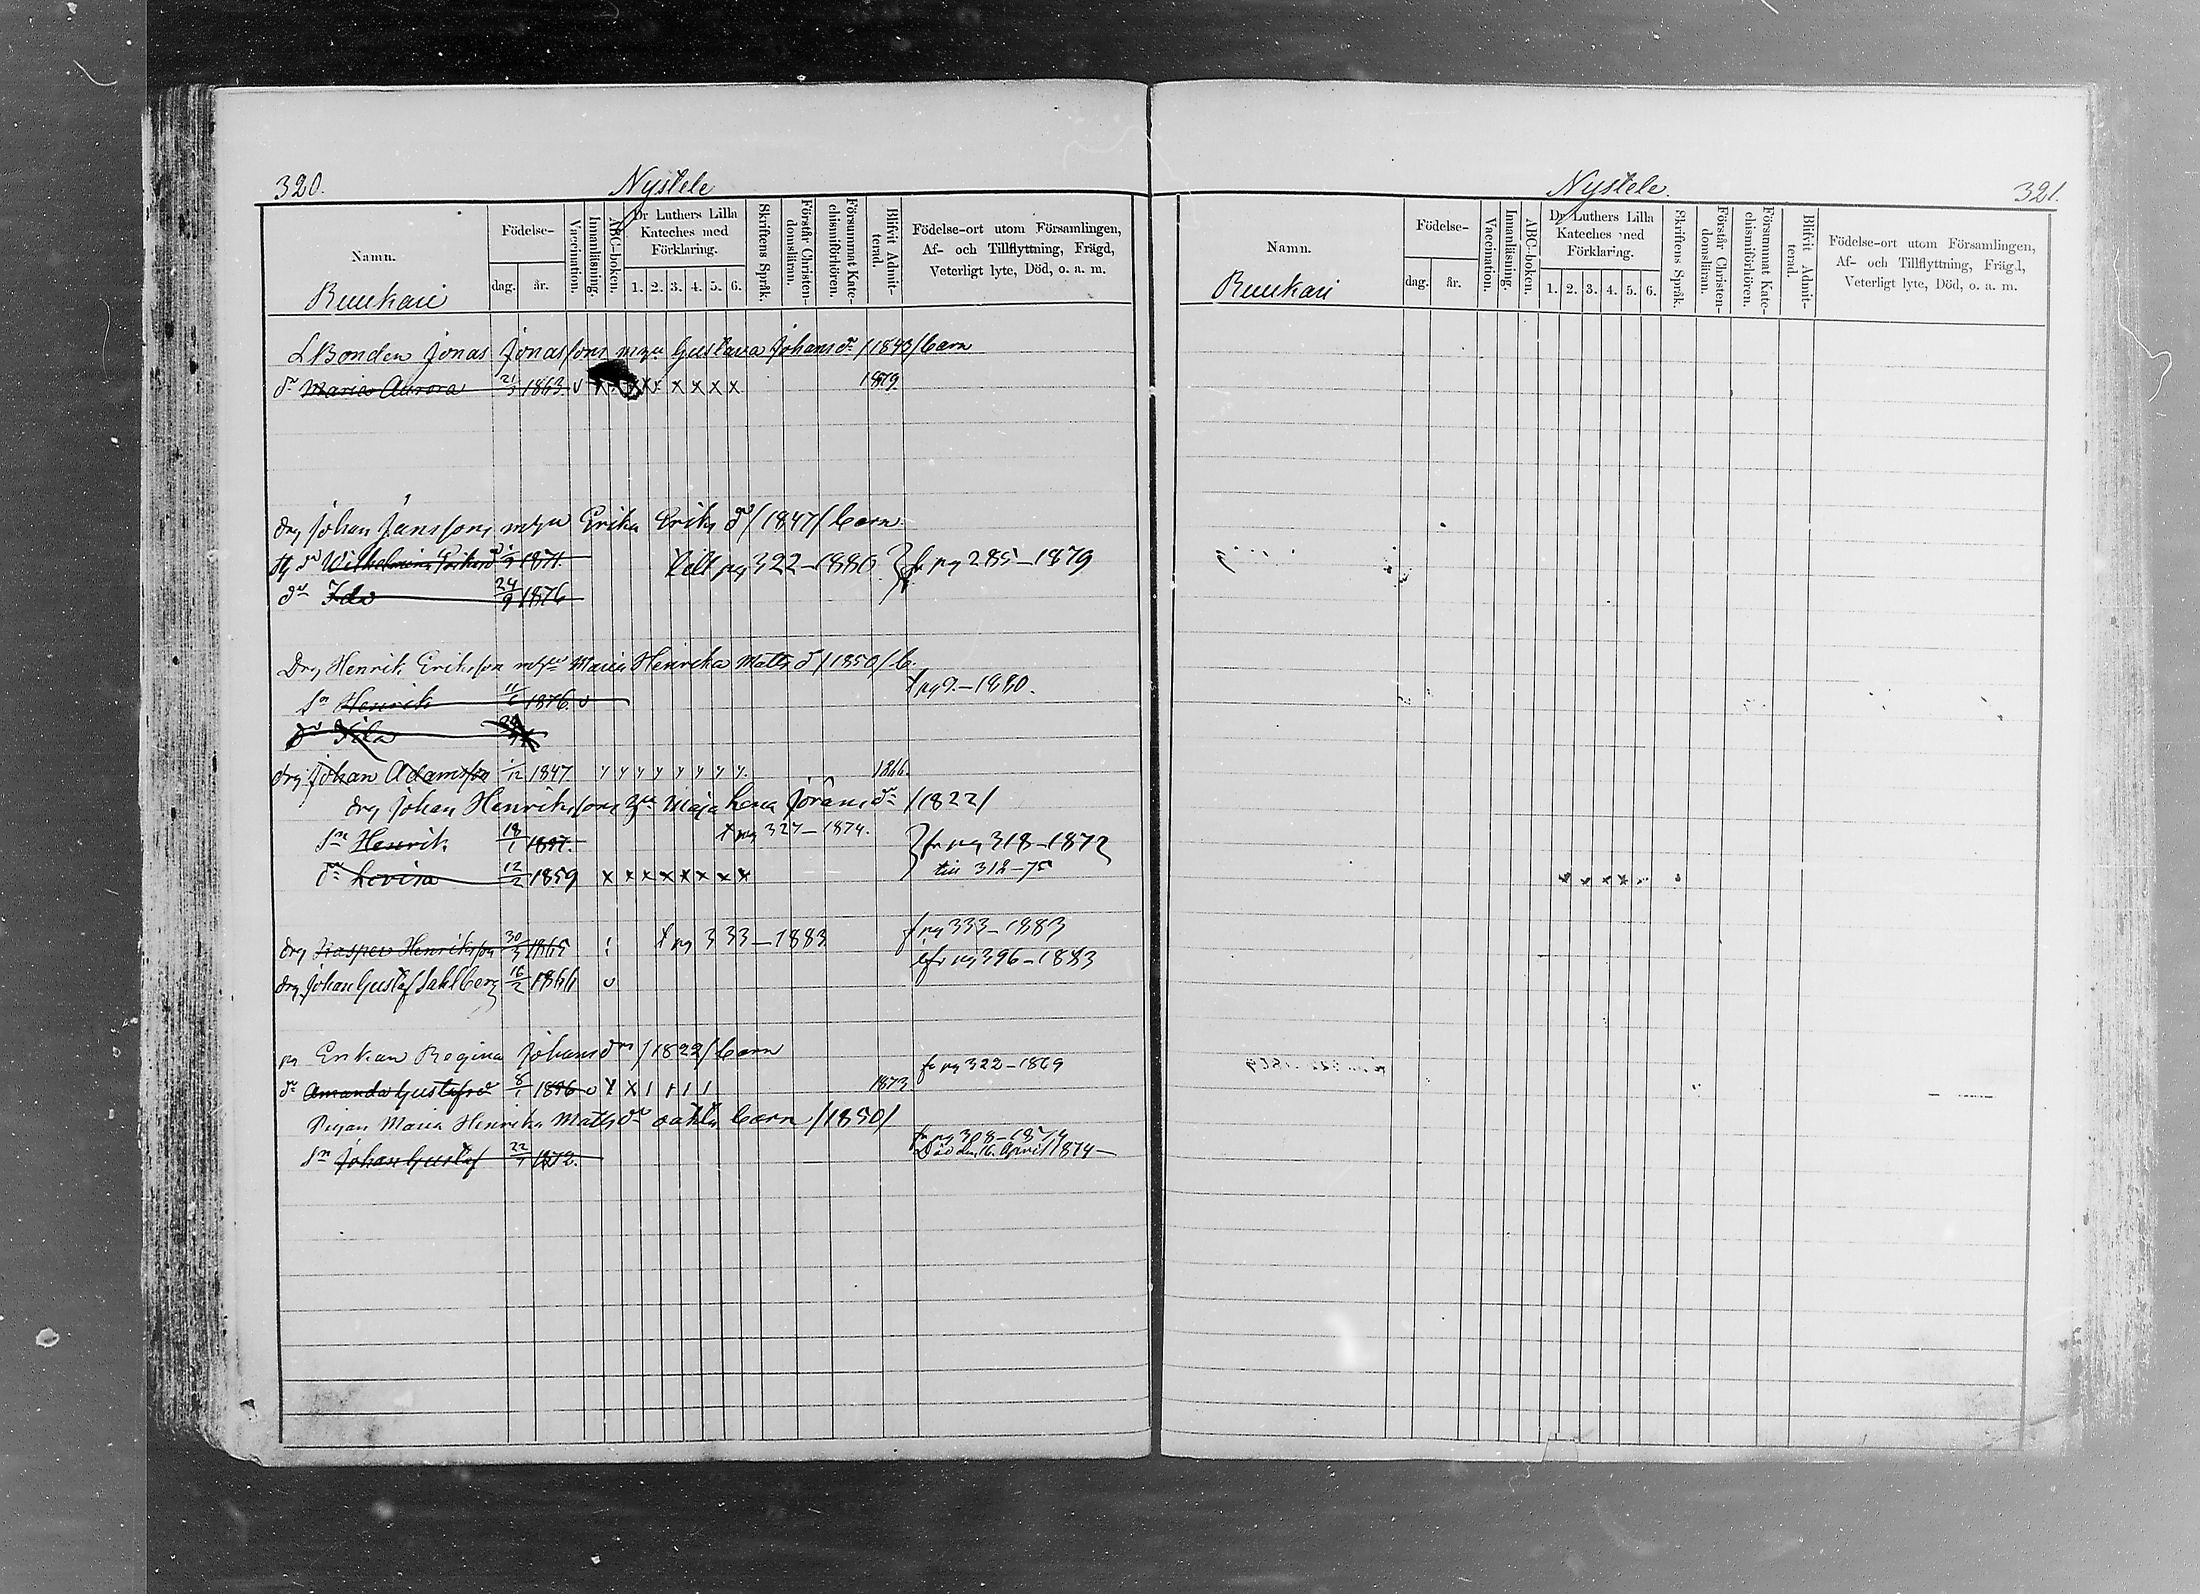 320. Nystele
Namn. Födelse- dag. år. Vaccination. Innanläsning. ABC-boken. Dr Luthers Lilla Kateches med Förklaring. 1. 2. 3. 4. 5. 6. Skriftens Språk. Förstår Christendomsläran. Försummat Katechismiförhören. Blifvit Admitterad. Födelse-ort utom Församlingen, Af- och Tillflyttning, Frägd, Veterligt lyte, Död, o. a. m.
Ruukari
Bonden Jonas Jonassons Gustava Johans dr /1843/ barn
dr Maria Aurora 1863 v x x x x x x x 1879
drg Johan Janssons Erika Eriks dr /1847/ barn
dr Wilhelmina 1871. pg 322–1880 fr pg 285–1879
dr Ida 24/9 1876
Drg Henrik Eriksson Maria Henrika Matts d /1850/ b.
Sn Henrik 1876. v t pg –1880.
dr Ida
drg Johan Adamsson 1/12 1847 1866.
drg Johan Henrikssons Maja Lena Jörans dr /1822/
Sn Henrik 18/1 t pg 327–1874. fr pg 318–1872
dr Lovisa 12/2 1859 x x x x x x x x till 312–75
drg Henriksson 30/3 1865 t pg 333–1883 f pg 333–1883
drg Johan Gustaf Sahlberg 16/2 1866 v fr pg 396–1883
Enkan Regina Johans drs /1822/ barn fr pg 322–1869
dr Amanda Gustafsd 8/1 1856 v x x 1 1 1 1 1873
Pigan Maria Henrika Matts dr oäkta barn /1850/
Sn Johan Gustaf 22/1 1872. Död den 16. April 1874
Nystele. 321.
Namn. Födelse- dag. år. Vaccination. Innanläsning. ABC-boken. Dr Luthers Lilla Kateches med Förklaring. 1. 2. 3. 4. 5. 6. Skriftens Språk. Förstår Christendomsläran. Försummat Katechismiförhören. Blifvit Admitterad. Födelse-ort utom Församlingen, Af- och Tillflyttning, Frägd, Veterligt lyte, Död, o. a. m.
Ruukari